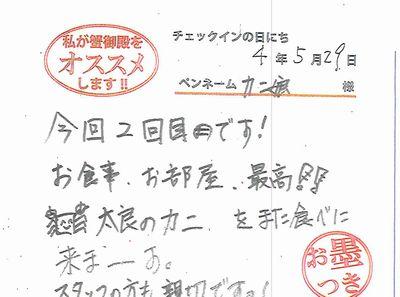 私が蟹御殿を
オススメ
します!!
チェックインの日にち
4年5月29日
ペンネーム カニ 様
今回2回目です!
お食事、お部屋、最高!!
太良のカニ を また食べに
来まーす。
スタッフの方も親切ですっ!
お墨
つき